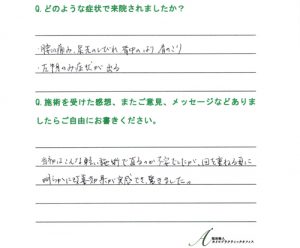 Q.どのような症状で来院されましたか？
・腰の痛み、足先のしびれ 背中のはり 肩のこり
・左半身のみ症状が出る
Q.施術を受けた感想、またご意見、メッセージなどありま
したらご自由にお書きください。
当初はこんな軽い施術で直るのか不安でしたが、回を重ねる毎に
明らかに改善効果が実感でき、驚きました。